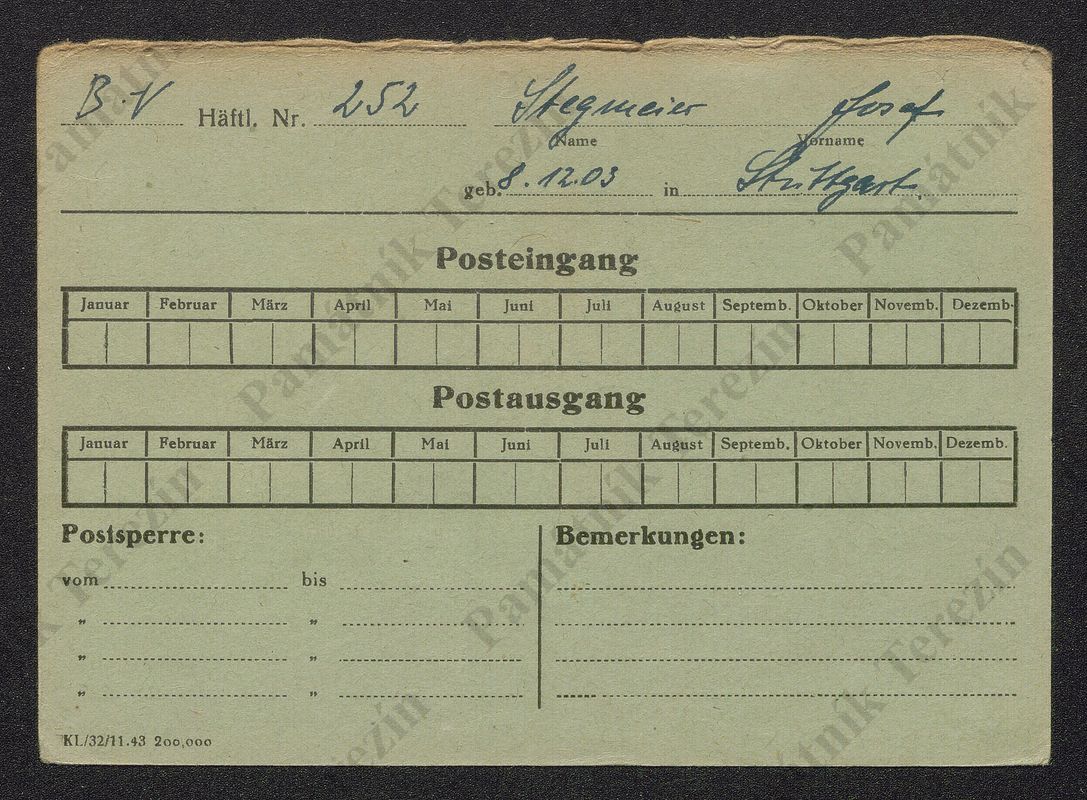 B.V Häftl. Nr. 252 Stegmeier Josef
Name Vorname
geb. 8.12.03 in Stuttgart
Posteingang
Januar Februar März April Mai Juni Juli August Septemb. Oktober Novemb. Dezemb.
Postausgang
Januar Februar März April Mai Juni Juli August Septemb. Oktober Novemb. Dezemb.
Postsperre: Bemerkungen:
vom bis
„ „
„ „
„ „
KL/32/11.43 200,000
Památník Terezín